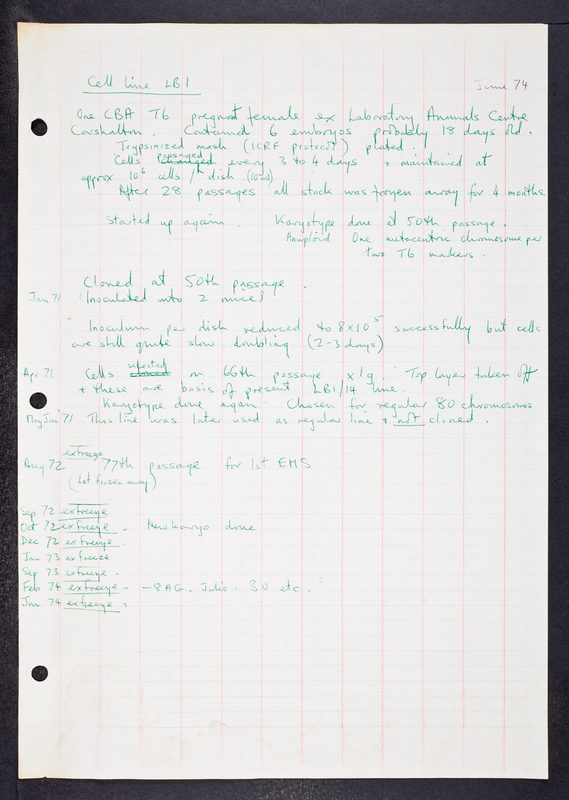 Cell line LB1
June 74
One CBA T6 pregnant female ex Laboratory Animals Centre
Carshalton. Contained 6 embryos probably 18 days old.
Trypsinized mash (ICRF protocol) plated.
Cells changed passaged every 3 to 4 days + maintained at
approx 10⁶ cells / dish (10ml)
After 28 passages all stock was frozen away for 4 months.
Started up again. Karyotype done at 50th passage.
Aneuploid One metacentric chromosome per
two T6 makers.
Cloned at 50th passage.
Jan 71 (Inoculated into 2 mice)
Inoculum per dish reduced to 8x10⁵ successfully but cells
are still quite slow doubling (2-3 days)
Apr 71 Cells cloned selected on 66th passage x1g. Top layer taken off
+ these are basis of present LB1/14 line.
Karyotype done again Chosen for regular 80 chromosomes
May Jun '71 This line was later used as regular line + not cloned.
Aug 72 exfreeze 77th passage for 1st EMS
(not frozen away)
Sep 72 exfreeze
Oct 72 exfreeze. New karyo done
Dec 72 exfreeze.
Jan 73 exfreeze
Sep 73 exfreeze.
Feb 74 exfreeze - - 8AG. Julio. BU etc.
Jun 74 exfreeze: